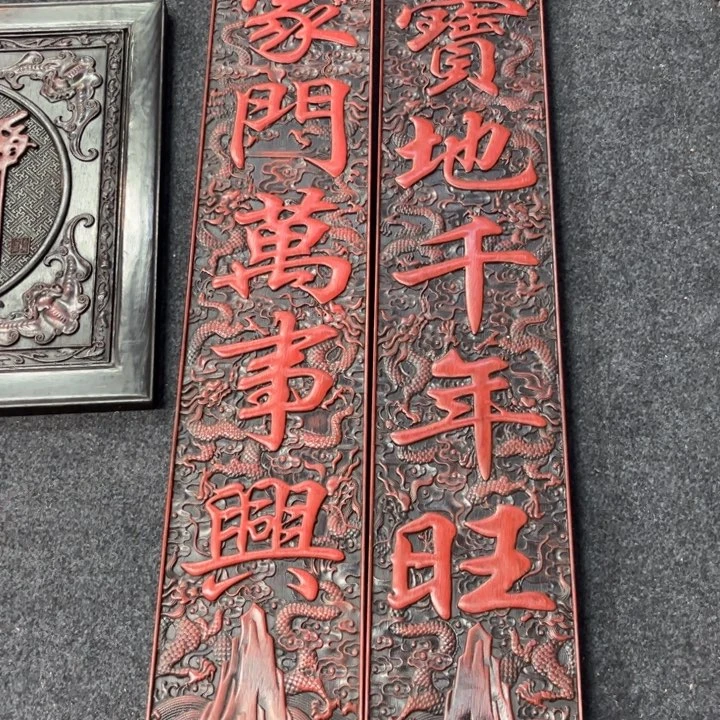 寶地千年旺
門萬事興